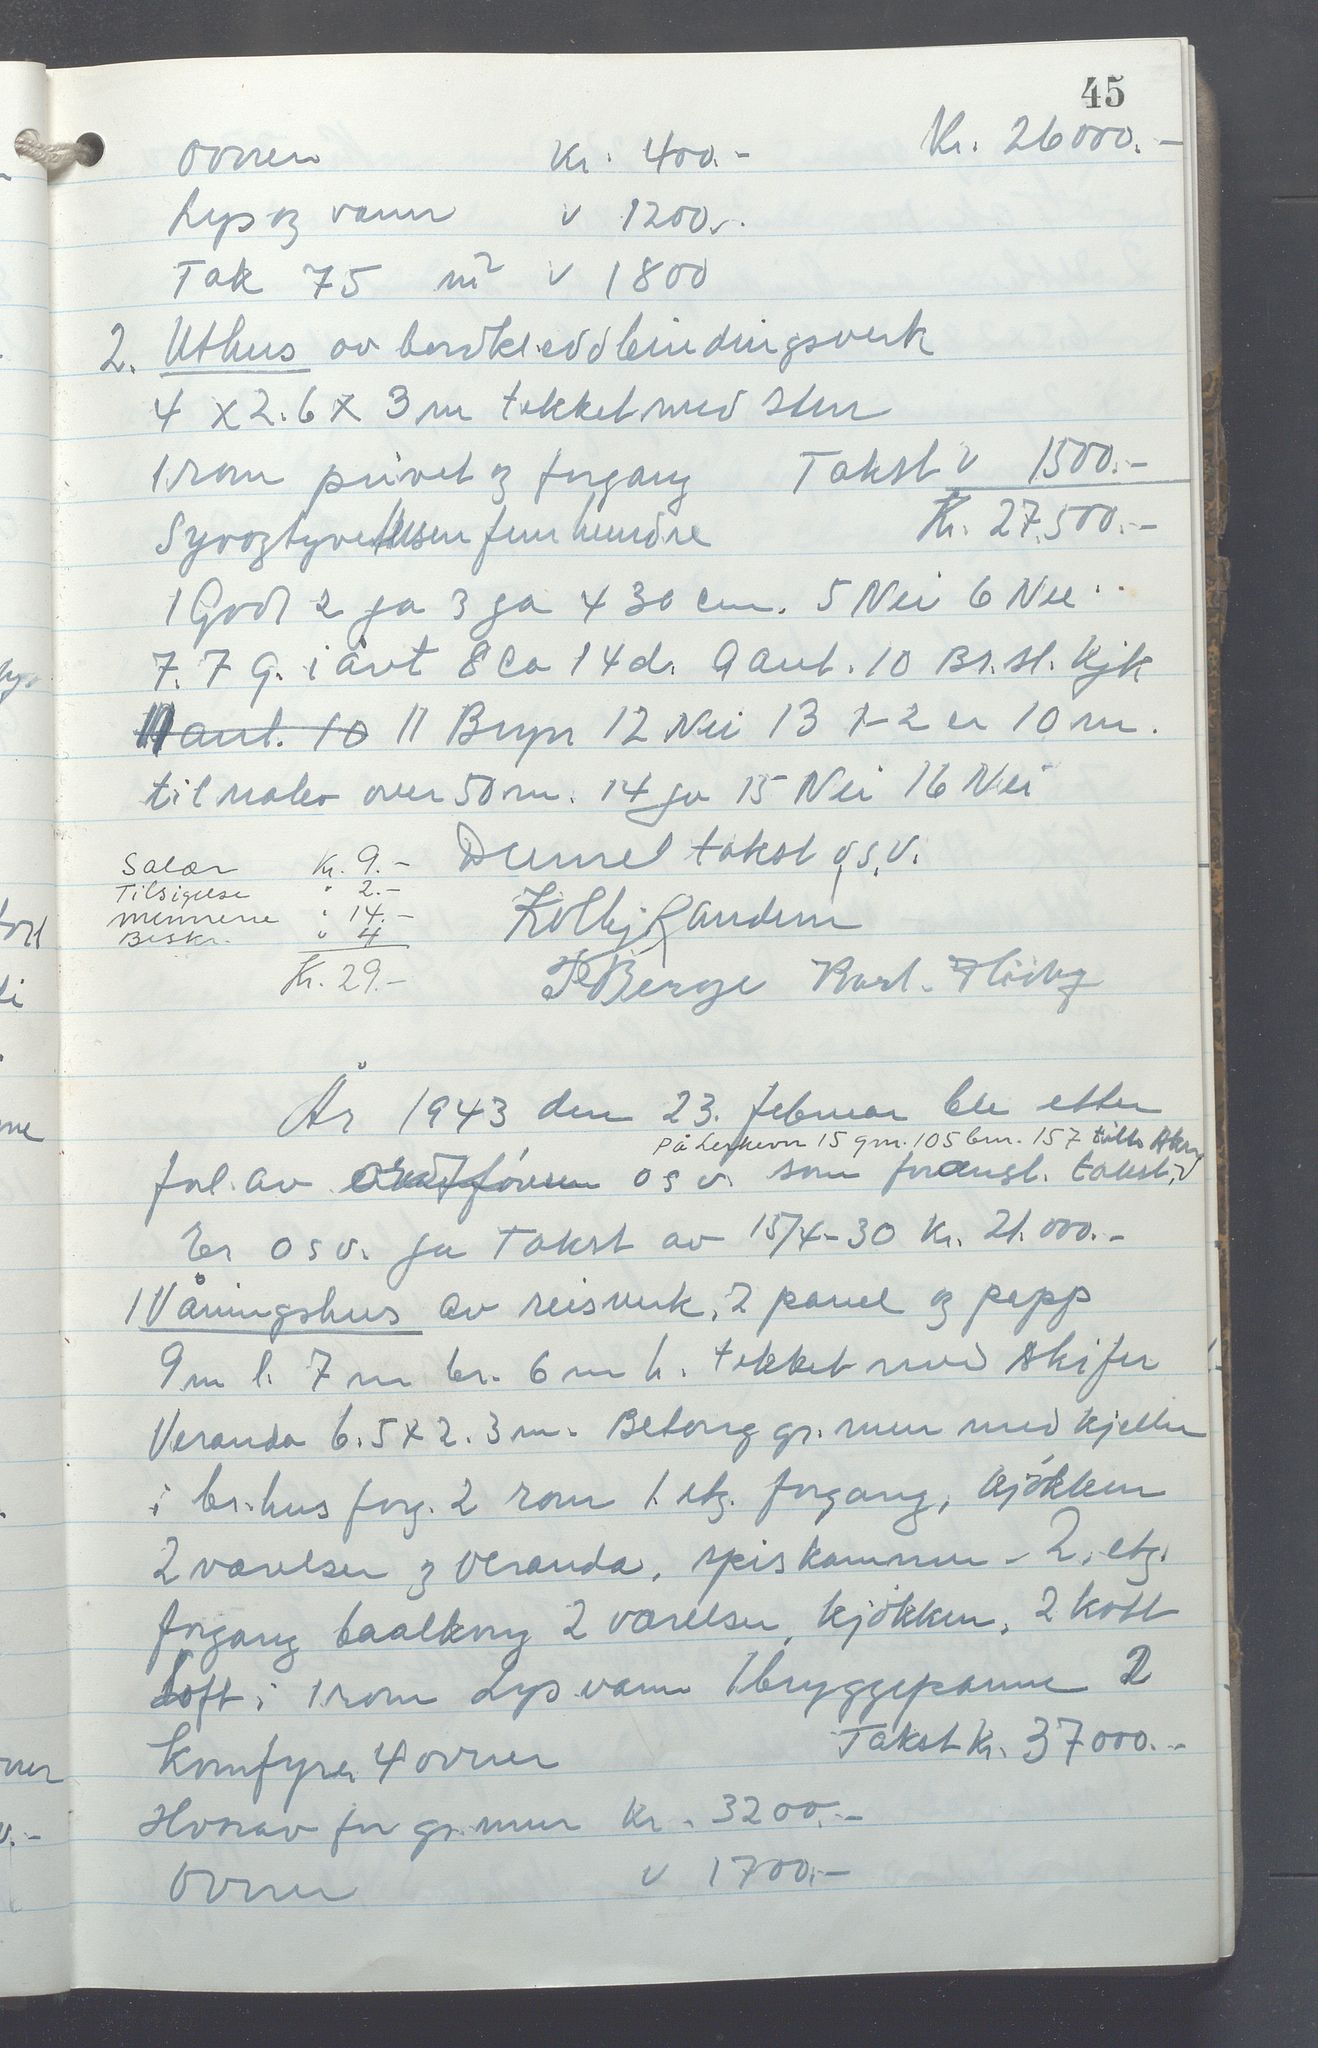 45
ovnen Kr. 400.- Kr. 26000.-
Lys og vann " 1200.-
Tak 75 m² " 1800
2. Uthus av bordkledd bindingsverk
4 x 2.6 x 3 m tekket med sten
1 rom privet og forgang Takst " 1500.-
Syvogtyvetusen femhundre Kr. 27.500.-
1 Godt 2 ja 3 ja 4 30 cm. 5 Nei 6 Nei
7. 7 g. i året 8 Ca 14 d. 9 ant. 10 Br. st. kjk
11 ant. 10 11 Bryn 12 Nei 13 1-2 er 10 m.
til nabo over 50 m. 14 ja 15 Nei 16 Nei
Denne takst o.s.v.
Salær Kr. 9.-
Tilsigelse " 2.-
Mennene " 14.-
Beskr. " 4
Kr. 29.-
Kolbj Randem
P Berge Karl
År 1943 den 23. februar ble etter
på 15 gnr. 105 bnr. 157
forl. av osv. som forangl. takst.
Er osv. ja Takst av 15/4-30 Kr. 21.000.-
1 Våningshus av reisverk, 2 panel og papp
9 m l. 7 m br. 6 m h. tekket med skifer
Veranda 6.5 x 2.3 m. Betong gr. mur med kjeller
i br.hus forg. 2 rom 1. etg. forgang, kjøkken
2 værelser og veranda, spiskammer - 2. etg.
forgang baalkong 2 værelser, kjøkken, 2 kott
Loft i 1 rom Lys vann 1 bryggepanne 2
komfyrer 4 ovner Takst Kr. 37000.-
Hvorav for gr. mur Kr. 3200.-
Ovner " 1700.-